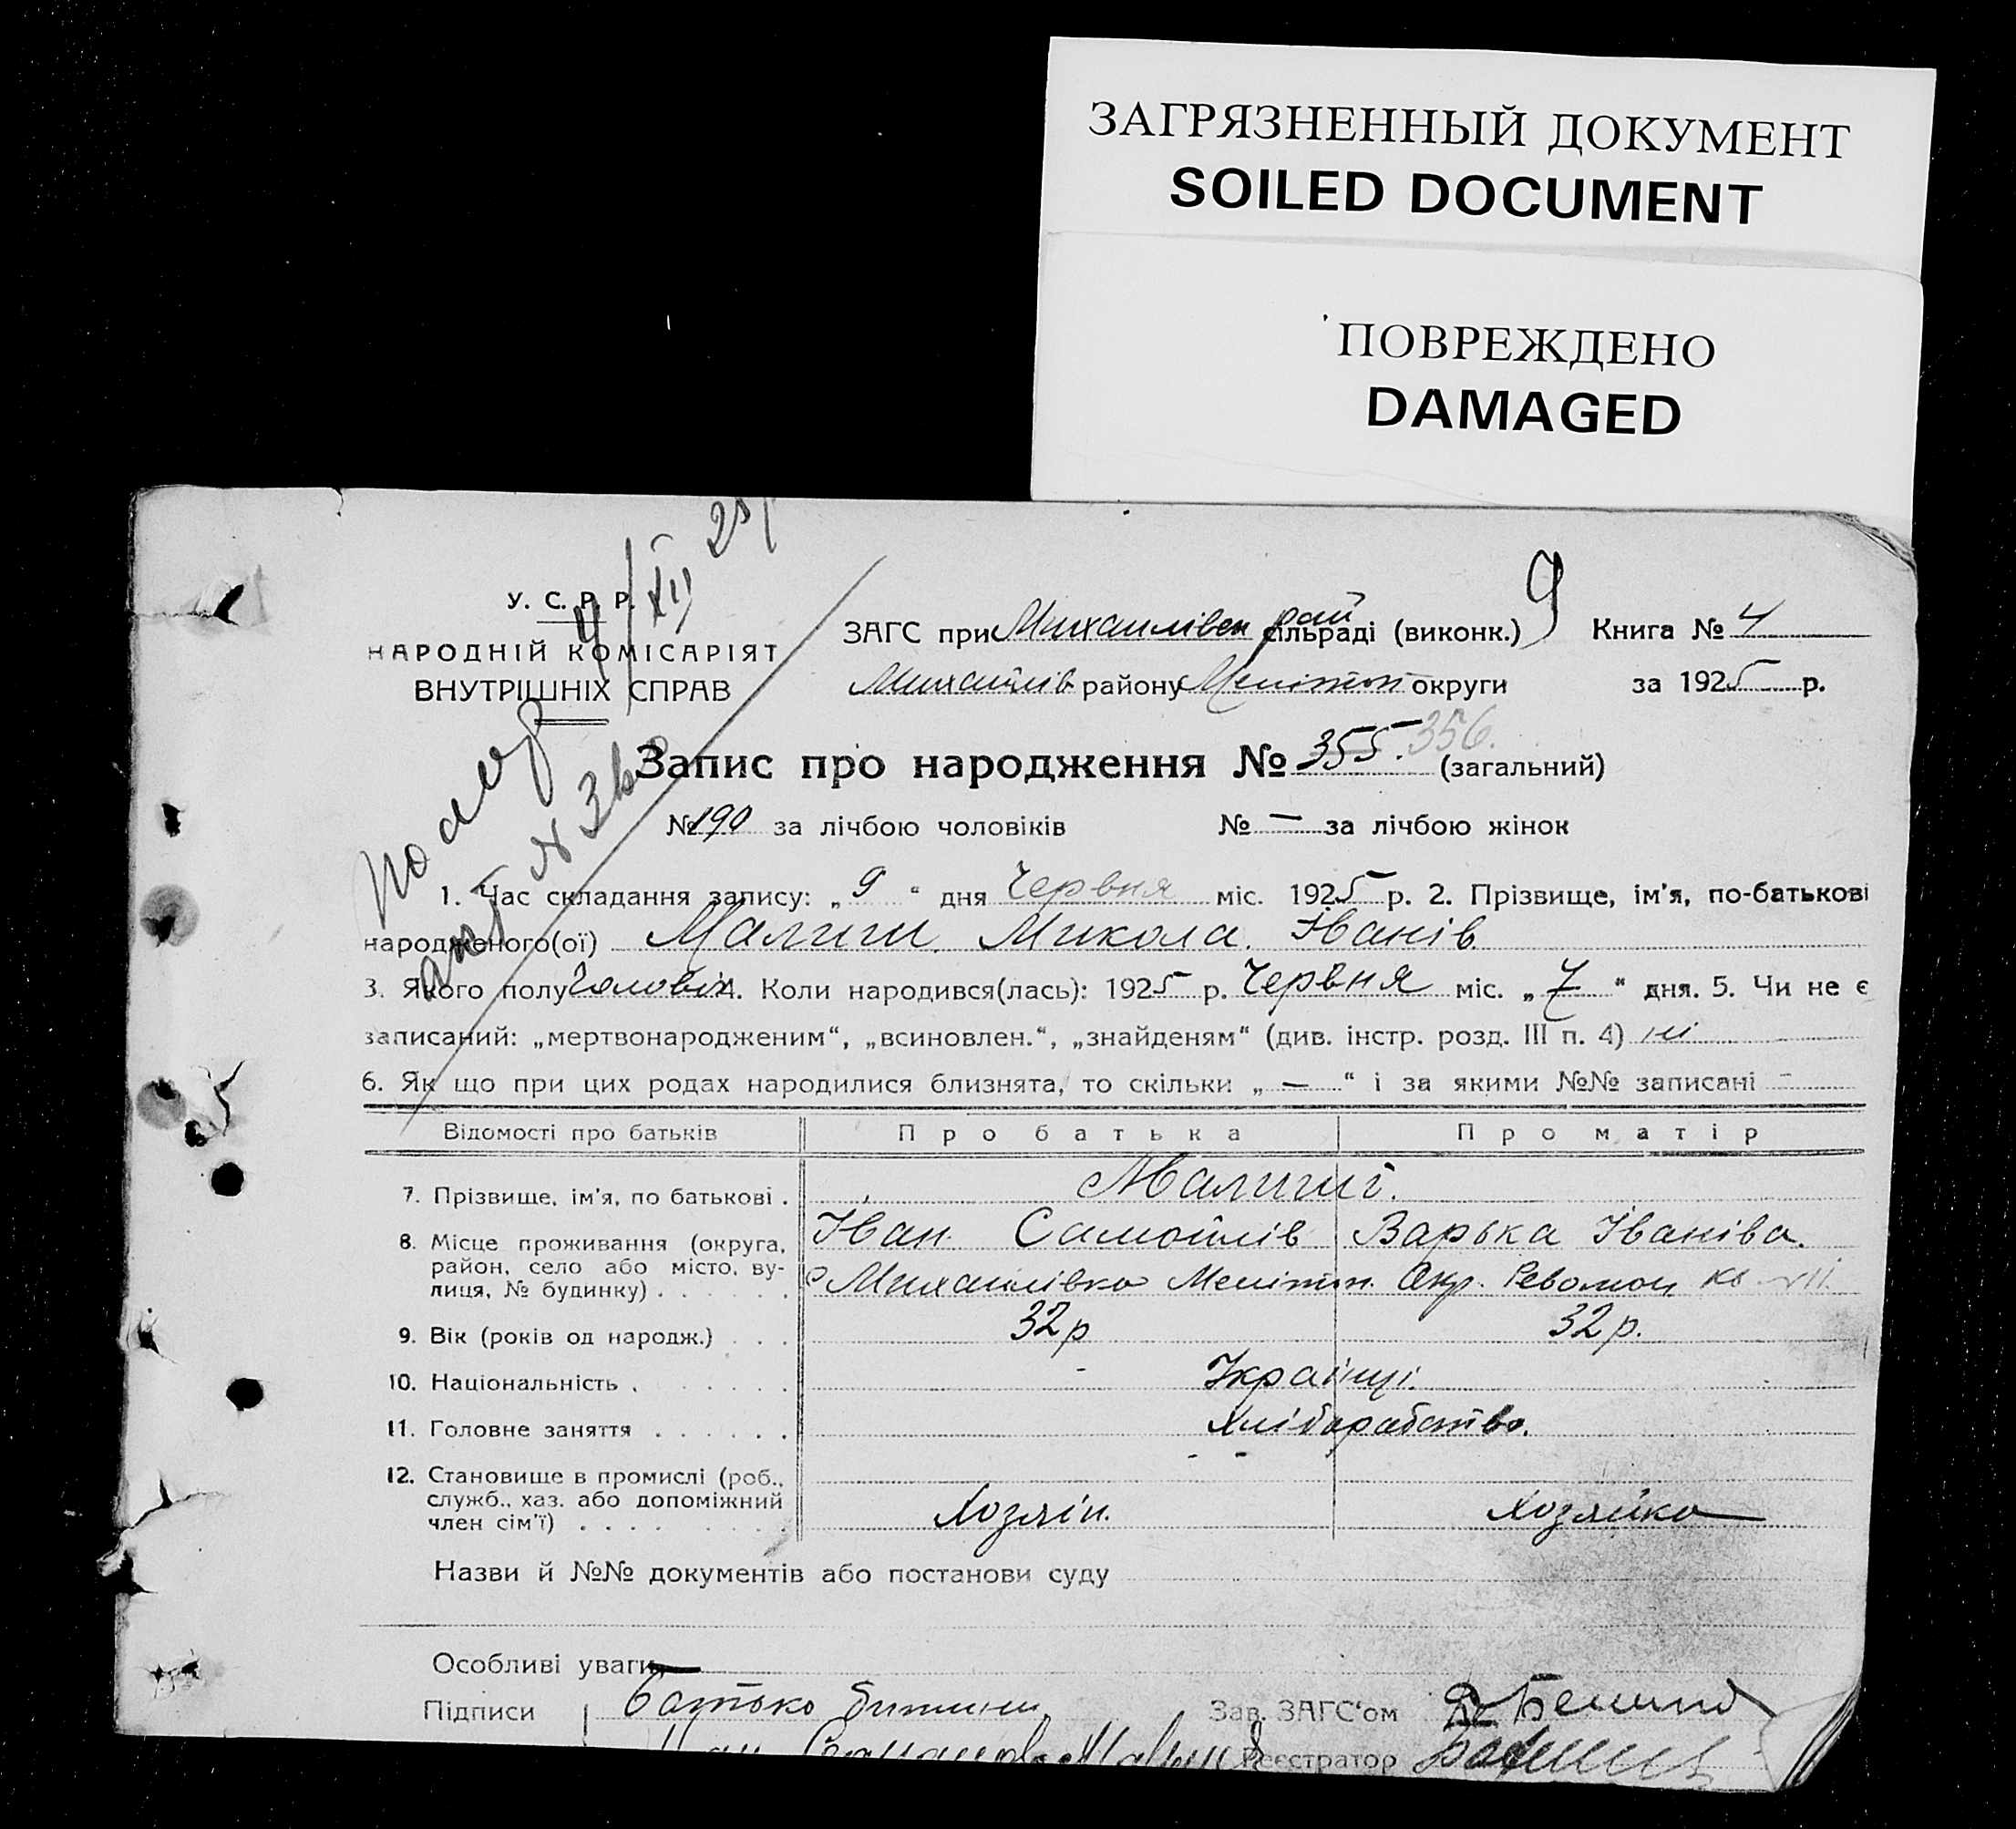 ЗАГРЯЗНЕННЫЙ ДОКУМЕНТ
SOILED DOCUMENT
ПОВРЕЖДЕНО
DAMAGED
4/XII 25
У. С. Р. Р.
НАРОДНІЙ КОМІСАРІЯТ
ВНУТРІШНІХ СПРАВ
9
ЗАГС при Михайлівск рай сільраді (виконк.) Книга № 4
Михайлів району Меліт округи за 1925 р.
Запис про народження № 355. 356. (загальний)
№ 190 за лічбою чоловіків № — за лічбою жінок
1. Час складання запису: „ 9 “ дня Червня міс. 1925 р. 2. Прізвище, ім'я, по-батькові
народженого(ої) Микола. Іванів.
3. Якого полу Чоловік 4. Коли народився(лась): 1925 р. Червня міс. „ 7 “ дня. 5. Чи не є
записаний: „мертвонародженим“, „всиновлен.“, „знайденям“ (див. інстр. розд. III п. 4) ні
6. Як що при цих родах народилися близнята, то скільки „ — “ і за якими №№ записані -
Відомості про батьків Про батька Про матір
7. Прізвище, ім'я, по батькові .
8. Місце проживання (округа, район, село або місто, вулиця, № будинку) . . . . . .
Іван Самойлів Варька Іванівa.
с Михайлівка Меліт. Окр.
9. Вік (років од народж.) . . . 32 р 32 р.
10. Національність . . . . . . Українці.
11. Головне заняття . . . . . . Хліборабство.
12. Становище в промислі (роб., служб., хаз. або допоміжний член сім'ї) . . . . . . . .
Хозяін. Хозяйка
Назви й №№ документів або постанови суду
Особливі уваги —
Підписи Батько Зав. ЗАГС'ом
Реєстратор